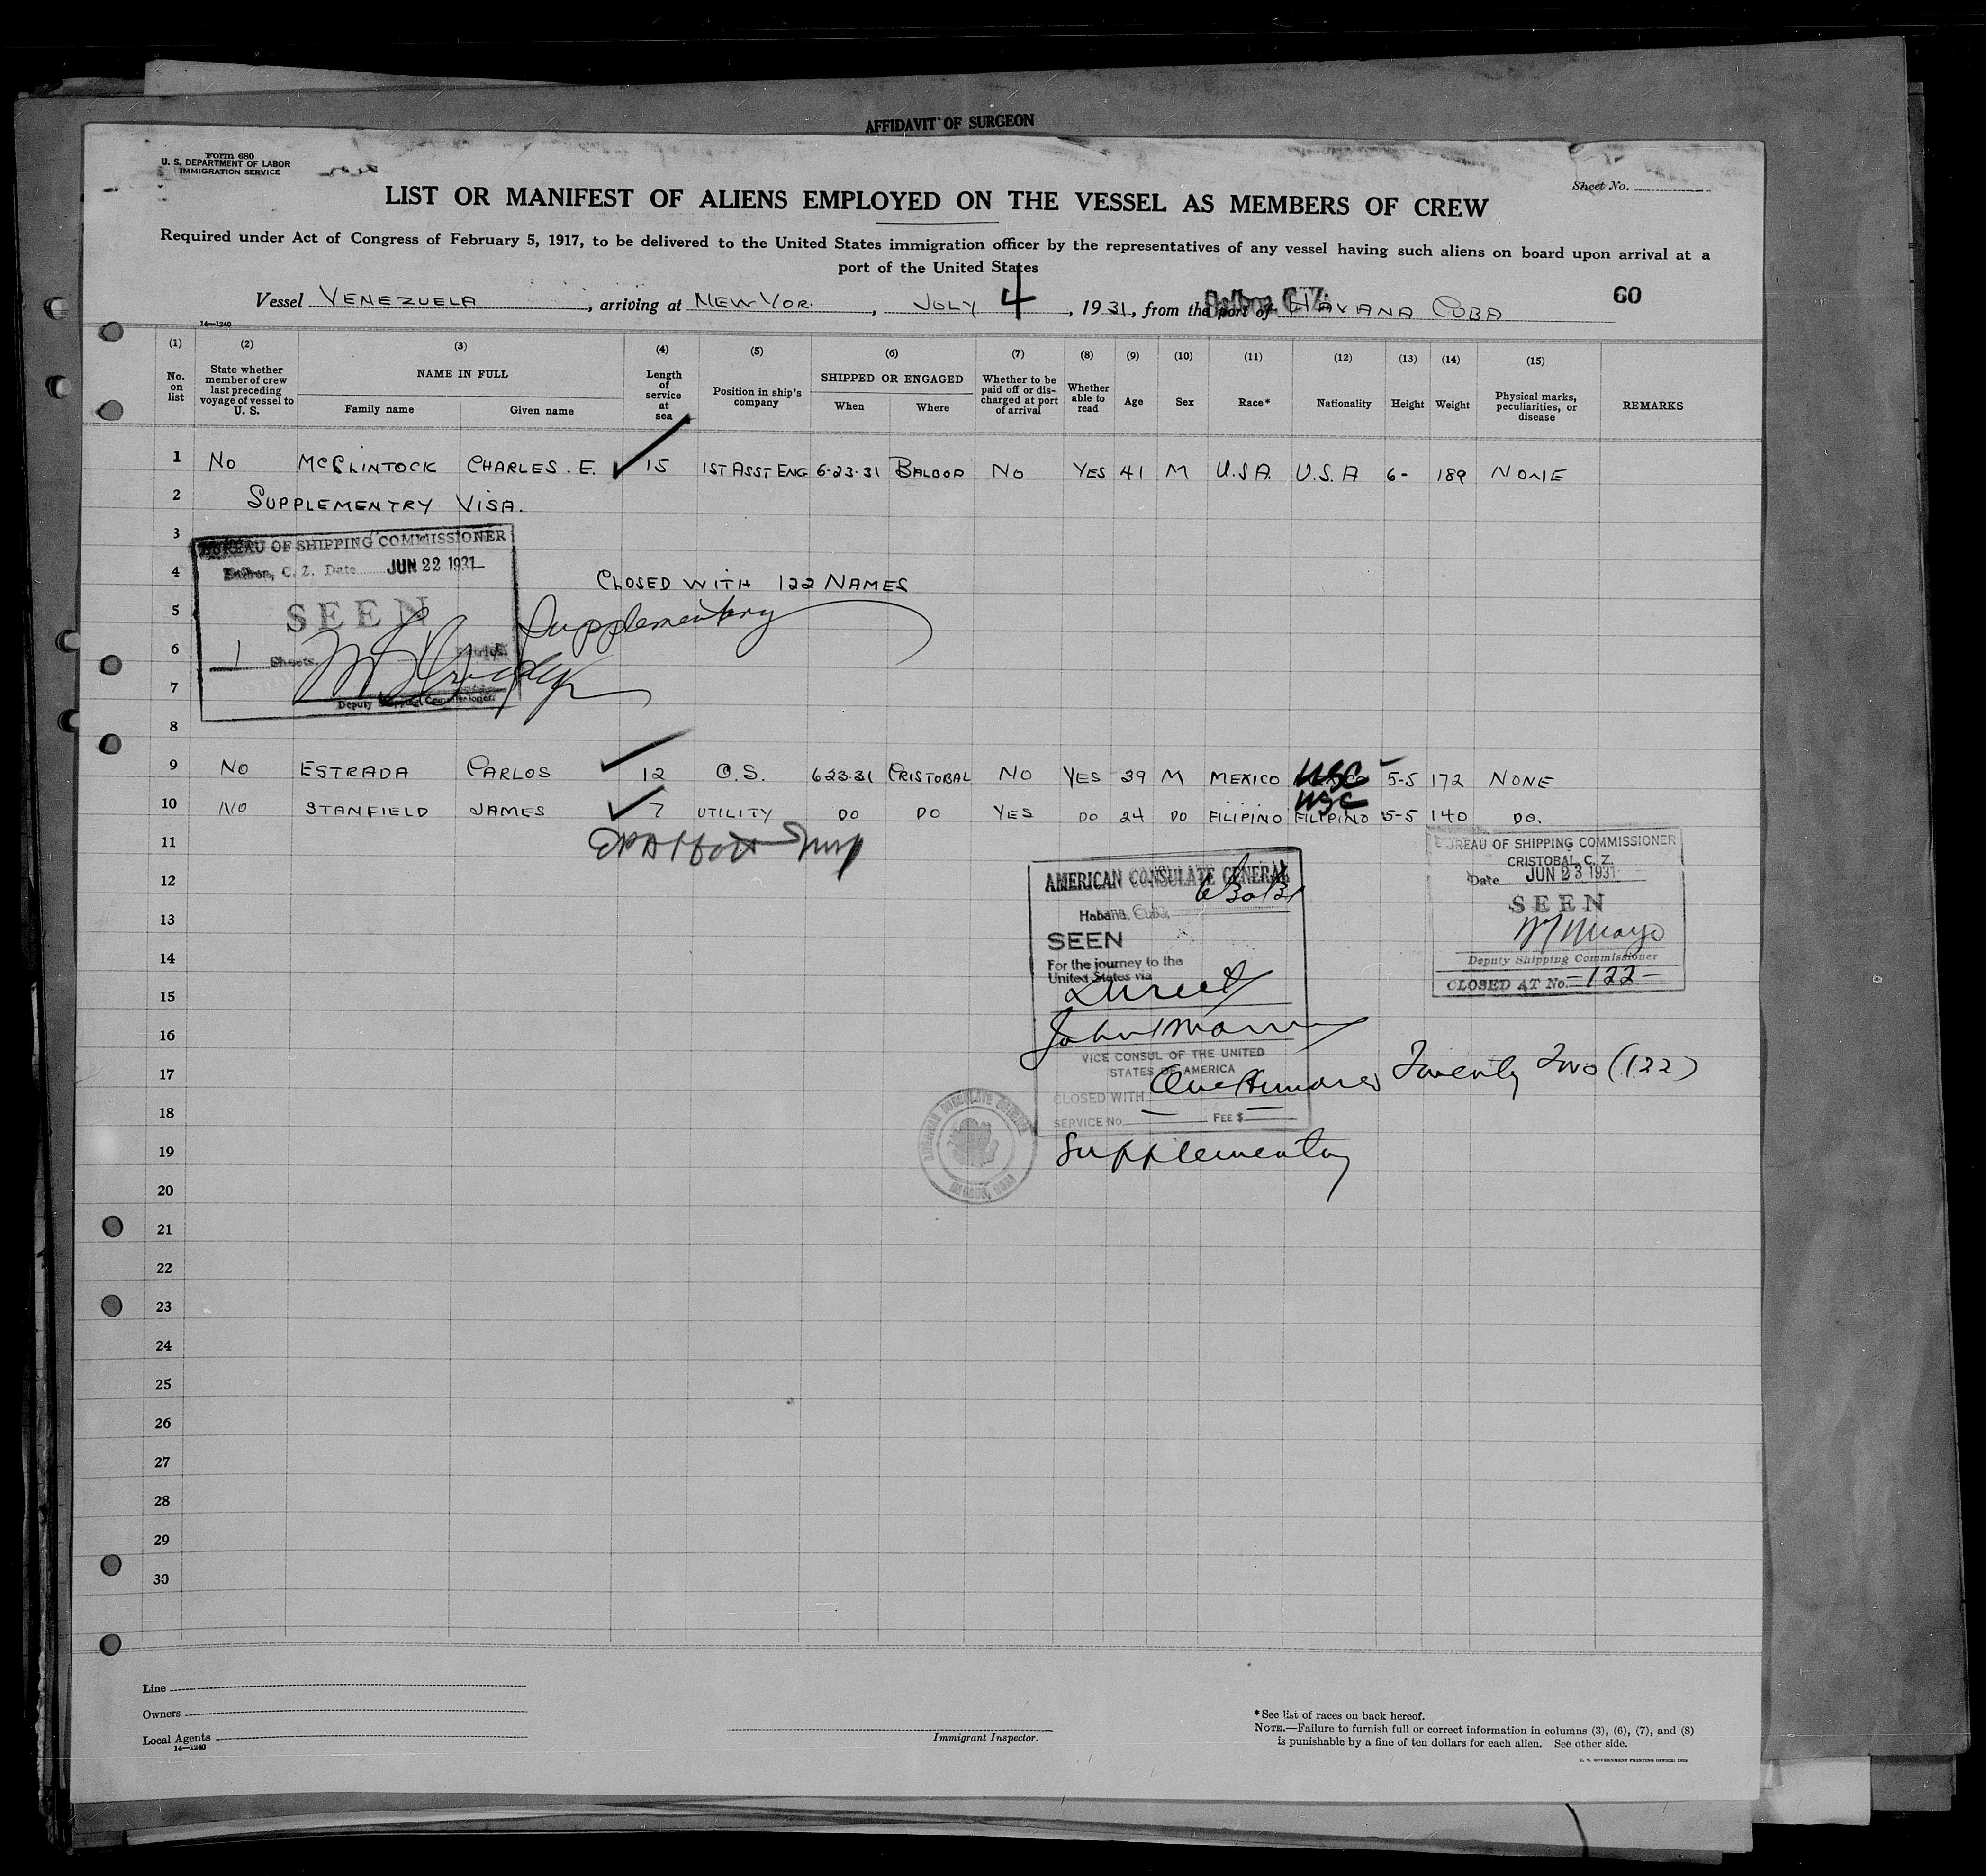 AFFIDAVIT OF SURGEON
Form 680
U. S. DEPARTMENT OF LABOR
IMMIGRATION SERVICE
Sheet No.
LIST OR MANIFEST OF ALIENS EMPLOYED ON THE VESSEL AS MEMBERS OF CREW
Required under Act of Congress of February 5, 1917, to be delivered to the United States immigration officer by the representatives of any vessel having such aliens on board upon arrival at a
port of the United States
Vessel VENEZUELA, arriving at NEW YOR, JULY 4, 1931, from the port of HAVANA CUBA
60
14—1240
(1) (2) (3) (4) (5) (6) (7) (8) (9) (10) (11) (12) (13) (14) (15)
No. on list
State whether member of crew last preceding voyage of vessel to U. S.
NAME IN FULL
Family name Given name
Length of service at sea
Position in ship's company
SHIPPED OR ENGAGED
When Where
Whether to be paid off or discharged at port of arrival
Whether able to read
Age Sex Race* Nationality Height Weight
Physical marks, peculiarities, or disease
REMARKS
1 NO MCCLINTOCK CHARLES. E. 15 1ST ASST ENG 6-23-31 BALBOA NO YES 41 M U.S.A. U.S.A 6- 189 NONE
2 SUPPLEMENTRY VISA.
3
BUREAU OF SHIPPING COMMISSIONER
C. Z. Date JUN 22 1931
4 CLOSED WITH 122 NAMES
SEEN
5 Supplementary
6
1 Sheets
7
Deputy Shipping Commissioner.
8
9 NO ESTRADA CARLOS 12 O.S. 6 23-31 CRISTOBAL NO YES 39 M MEXICO USC 5-5 172 NONE
USC
10 NO STANFIELD JAMES 7 UTILITY DO DO YES DO 24 DO FILIPINO FILIPINO 5-5 140 DO.
11
BUREAU OF SHIPPING COMMISSIONER
CRISTOBAL, C. Z.
Date JUN 23 1931
SEEN
Deputy Shipping Commissioner
CLOSED AT No. 122
12
AMERICAN CONSULATE GENERAL
6/30/31
Habana, Cuba,
13
SEEN
14
For the journey to the
United States via
15
Direct
16
VICE CONSUL OF THE UNITED
STATES OF AMERICA
17
CLOSED WITH One Hundred Twenty Two (122)
18
SERVICE No. FEE $
19
Supplementary
20
21
22
23
24
25
26
27
28
29
30
Line
Owners
Local Agents
14—1240
Immigrant Inspector.
*See list of races on back hereof.
NOTE.—Failure to furnish full or correct information in columns (3), (6), (7), and (8)
is punishable by a fine of ten dollars for each alien. See other side.
U. S. GOVERNMENT PRINTING OFFICE: